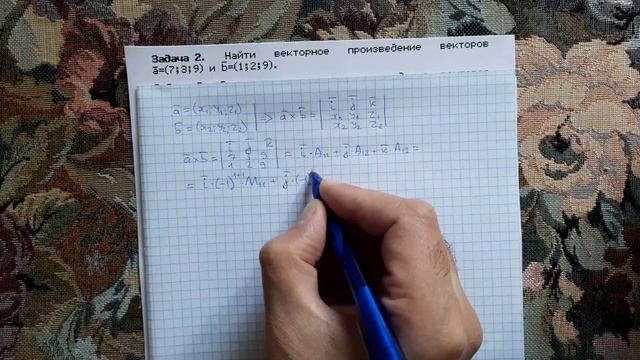 Задача 2. Найти векторное произведение векторов
a̅=(7;3;9) и b̅=(1;2;9).
a̅ = (x₁; y₁; z₁)
b̅ = (x₂; y₂; z₂)
⇒ a̅×b̅ = | i̅ j̅ k̅ |
| x₁ y₁ z₁ |
| x₂ y₂ z₂ |
a̅×b̅ = | i̅ j̅ k̅ |
| 7 3 9 | = i̅·A₁₁ + j̅·A₁₂ + k̅·A₁₂ =
| 1 2 9 |
= i̅·(-1)¹⁺¹·M₁₁ + j̅·(-1